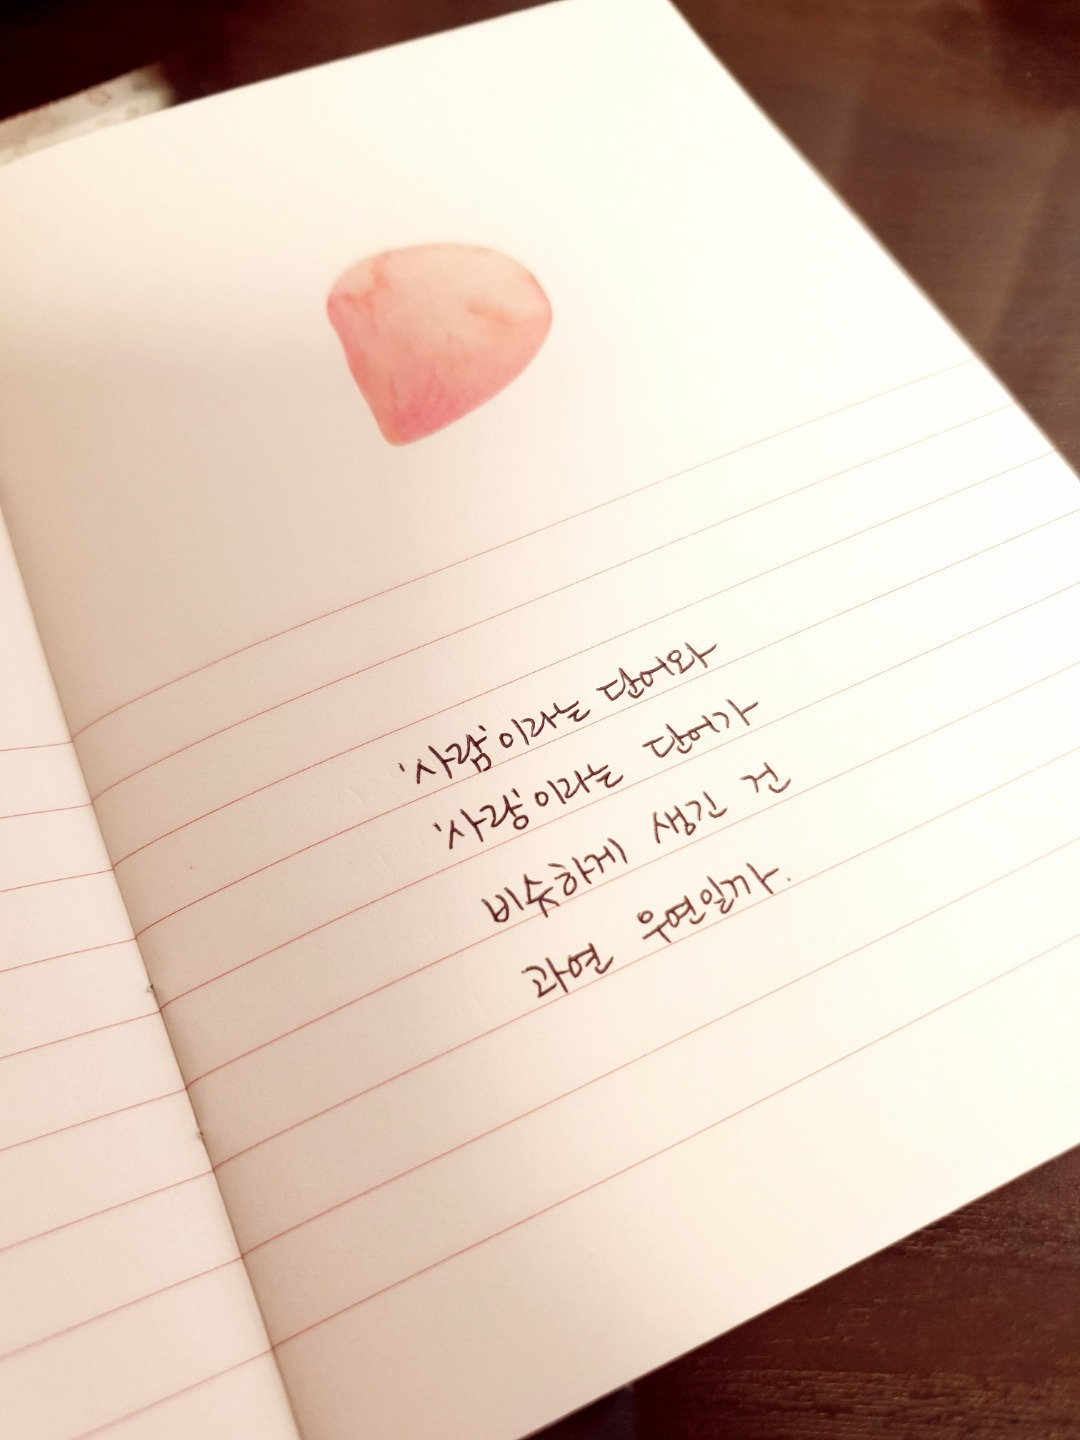 '사람'이라는 단어와
'사랑'이라는 단어가
비슷하게 생긴 건
과연 우연일까.